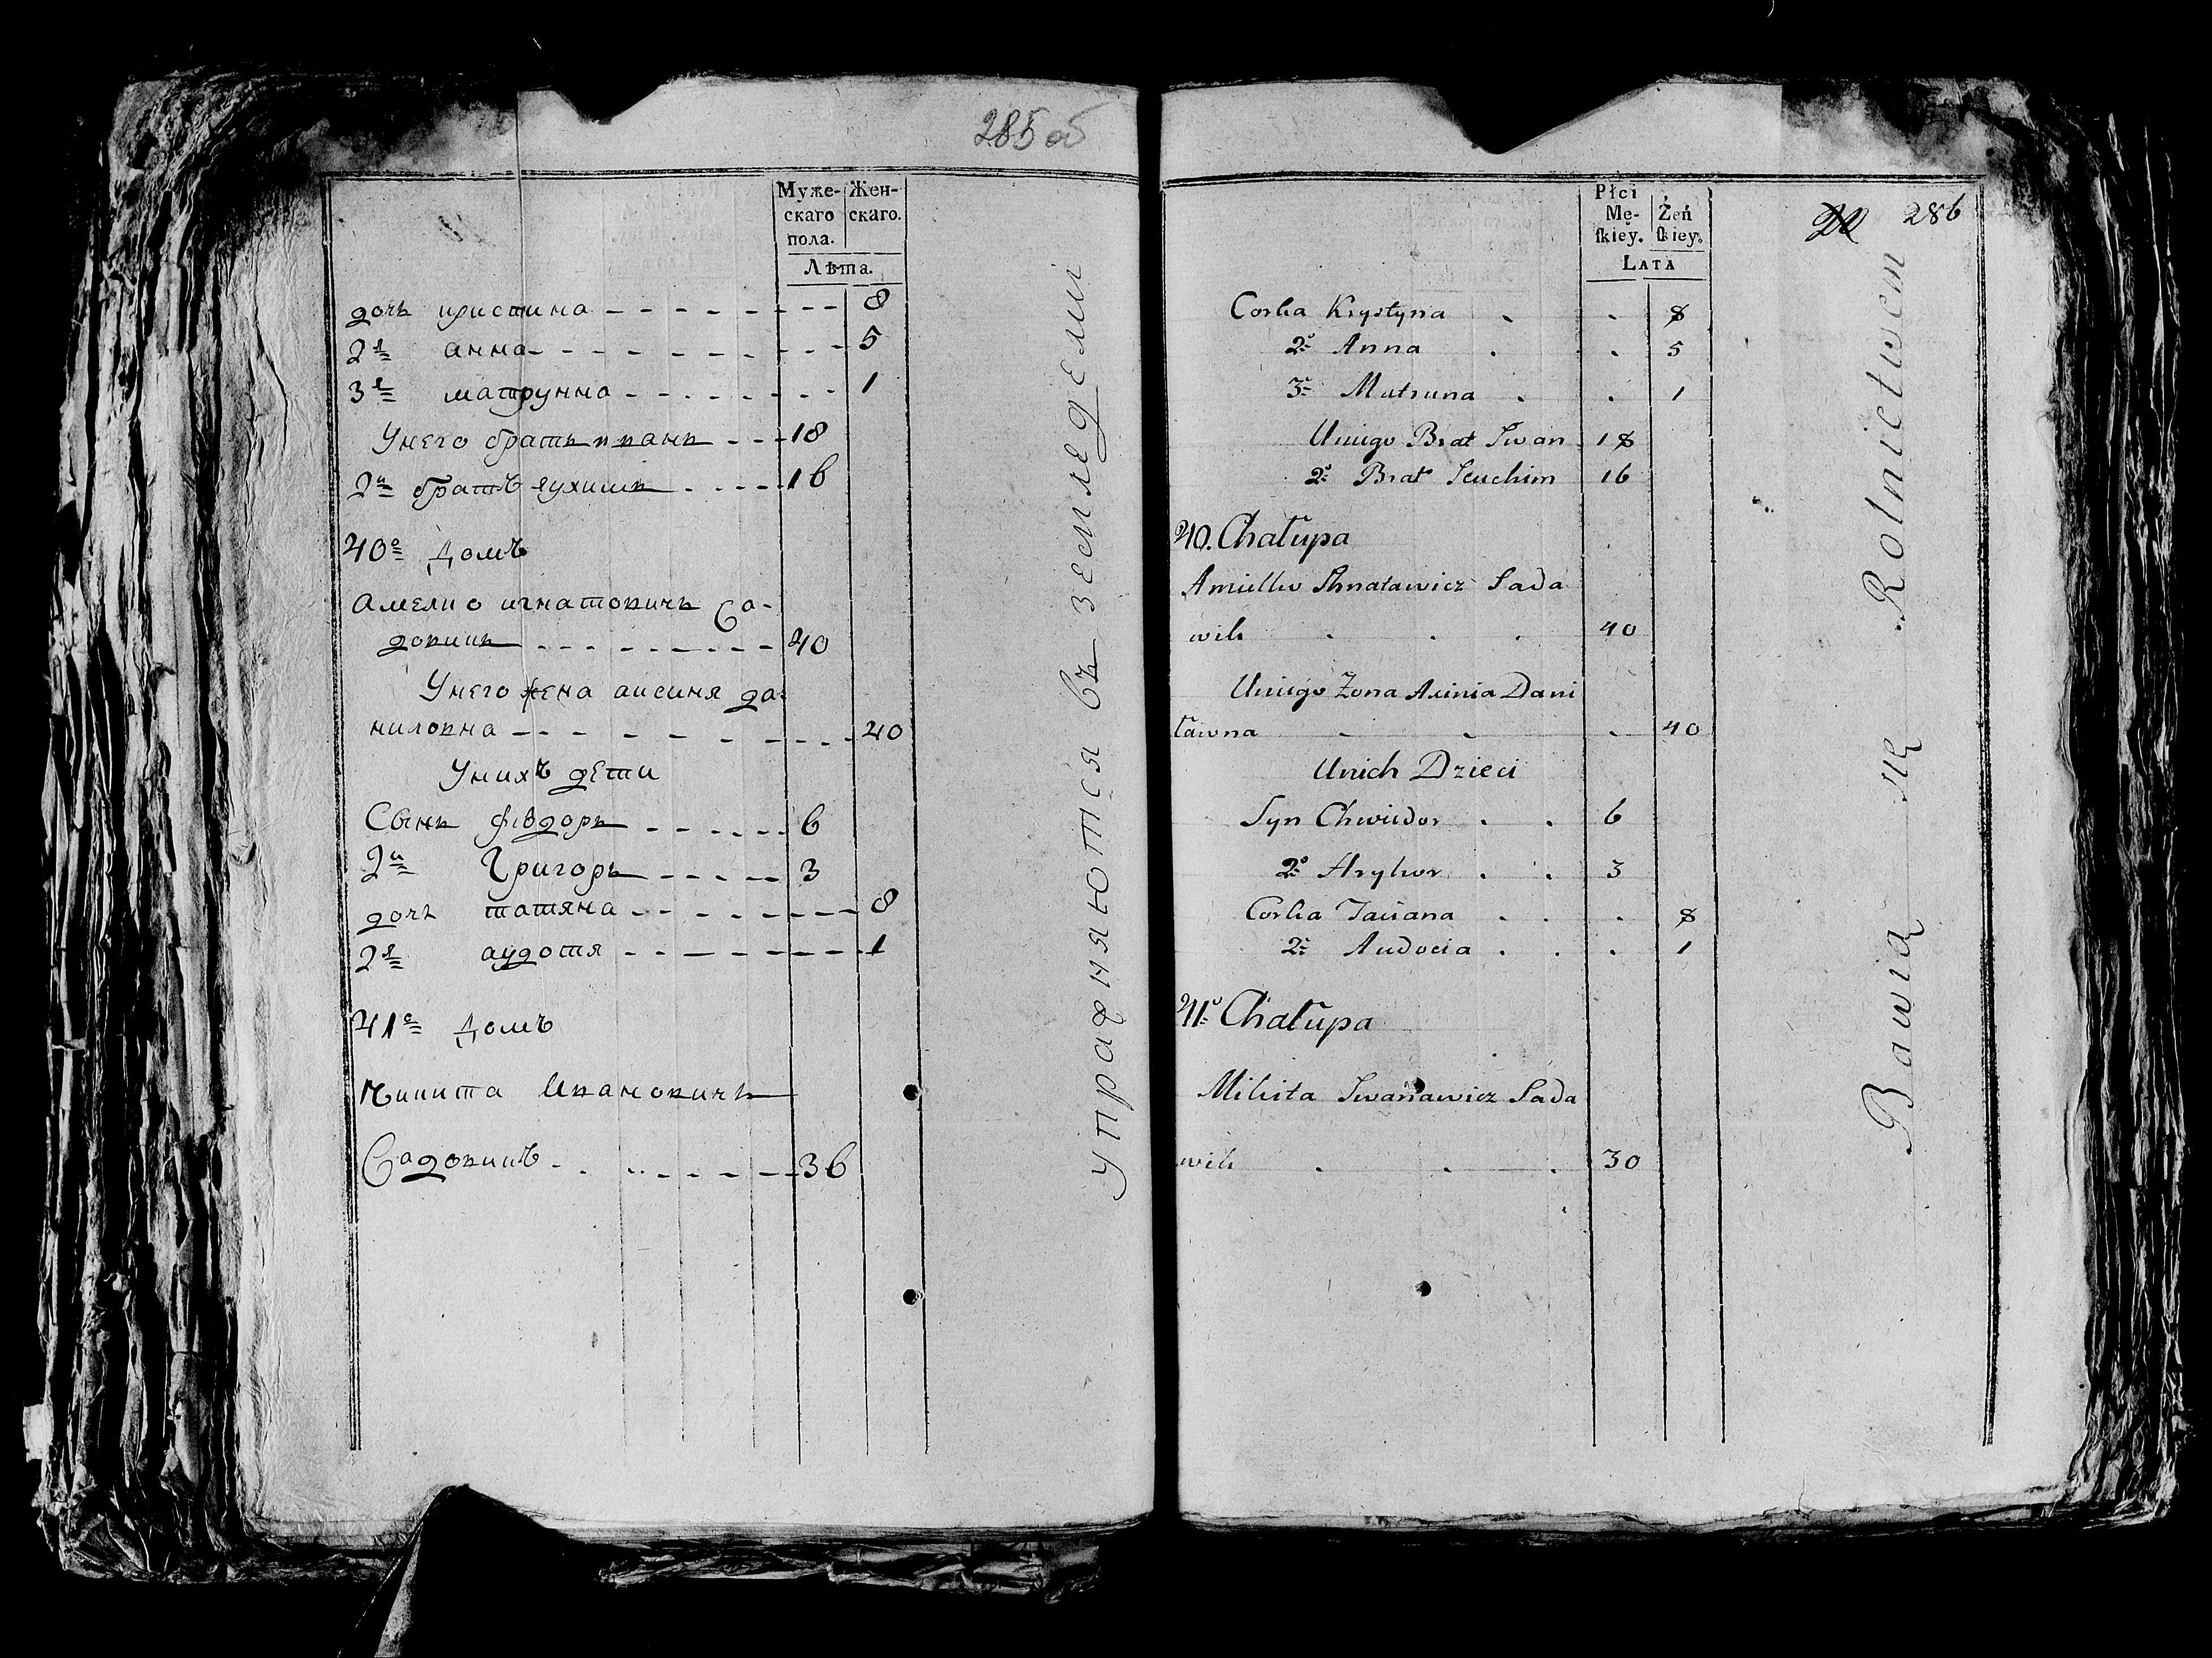 285 об
Муже- Жен-
скаго скаго.
пола.
Лѣта.
дочь кристина 8
2я анна 5
3я матрунна 1
Унего братъ иванъ 18
2й братъ еухимъ 16
40е Домъ
амелко игнатовичь Са-
довикъ 40
Унего жена аксиня да-
ниловна 40
Унихъ дети
Сынъ фіодоръ 6
2й Григоръ 3
дочь татяна 8
2я аудотя 1
41е Домъ
Микита Ивановичь
Садовикъ 36
упражняются въ земледелии
Płci
Mę- Żeń
skiey. skiey.
LATA
20 286
Corka Krystyna 8
2a Anna 5
3a Matruna 1
Uniego Brat Iwan 18
2o Brat Jeuchim 16
40. Chałupa
Amielko Ihnatawicz Sada
wik 40
Uniego Zona Axinia Dani
ławna 40
Unich Dzieci
Syn Chwiedor 6
2o Hryhor 3
Corka Taciana 8
2a Audocia 1
41o Chałupa
Mikita Iwanawicz Sada
wik 30
Bawią się Rolnictwem